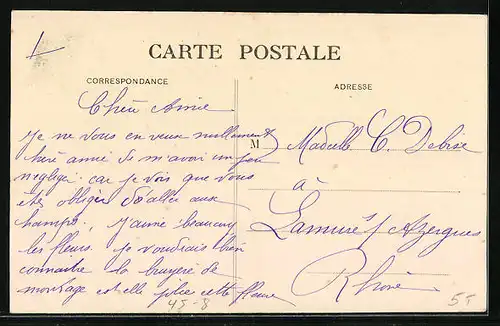 CARTE POSTALE
CORRESPONDANCE
ADRESSE
Chère Amie
Je ne vous en veux nullement
chère amie de m'avoir un peu
négligée car je vois que vous
êtes obligée d'aller aux
champs, J'aime beaucoup
les fleurs. je voudrais bien
connaître la bruyère de
montage est elle jolie cette fleur
M
Madelle C. Debise
à
Lamure s/ Azergues
Rhône
45-8
55